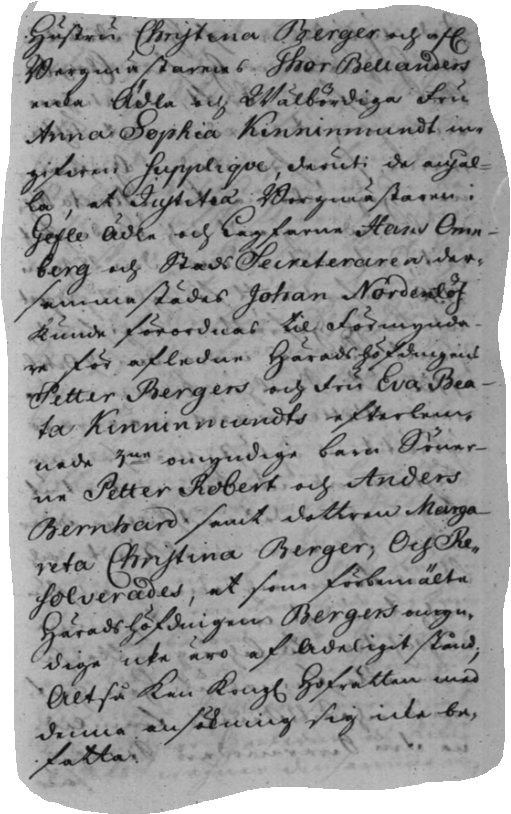 Hustru Christina Berger och afl:
Bergmästarens Thor Bellanders
enka Ädla och Wälbördiga Fru
Anna Sophia Kinninmundt in-
gifven Supplique, deruti de anhål-
la, at Justitiæ Borgmästaren i
Gefle Ädle och Lagfarne Hans Om-
berg och Stads Secreteraren der-
sammastädes Johan Nordenlöf
kunde förordnas til Förmynda-
re för afledne Häradshöfdingens
Petter Bergers och Fru Eva Bea-
ta Kinninmundts efterlem-
nade omyndige barn Söner-
ne Petter Robert och Anders
Bernhard samt dottren Marga-
reta Christina Berger, Och Re-
solverades, at som förbemälte
Häradshöfdingen Bergers omyn-
dige icke äro af Adeligit stånd,
Altså kan Kongl Hofrätten med
denna ansökning sig icke be-
fatta.